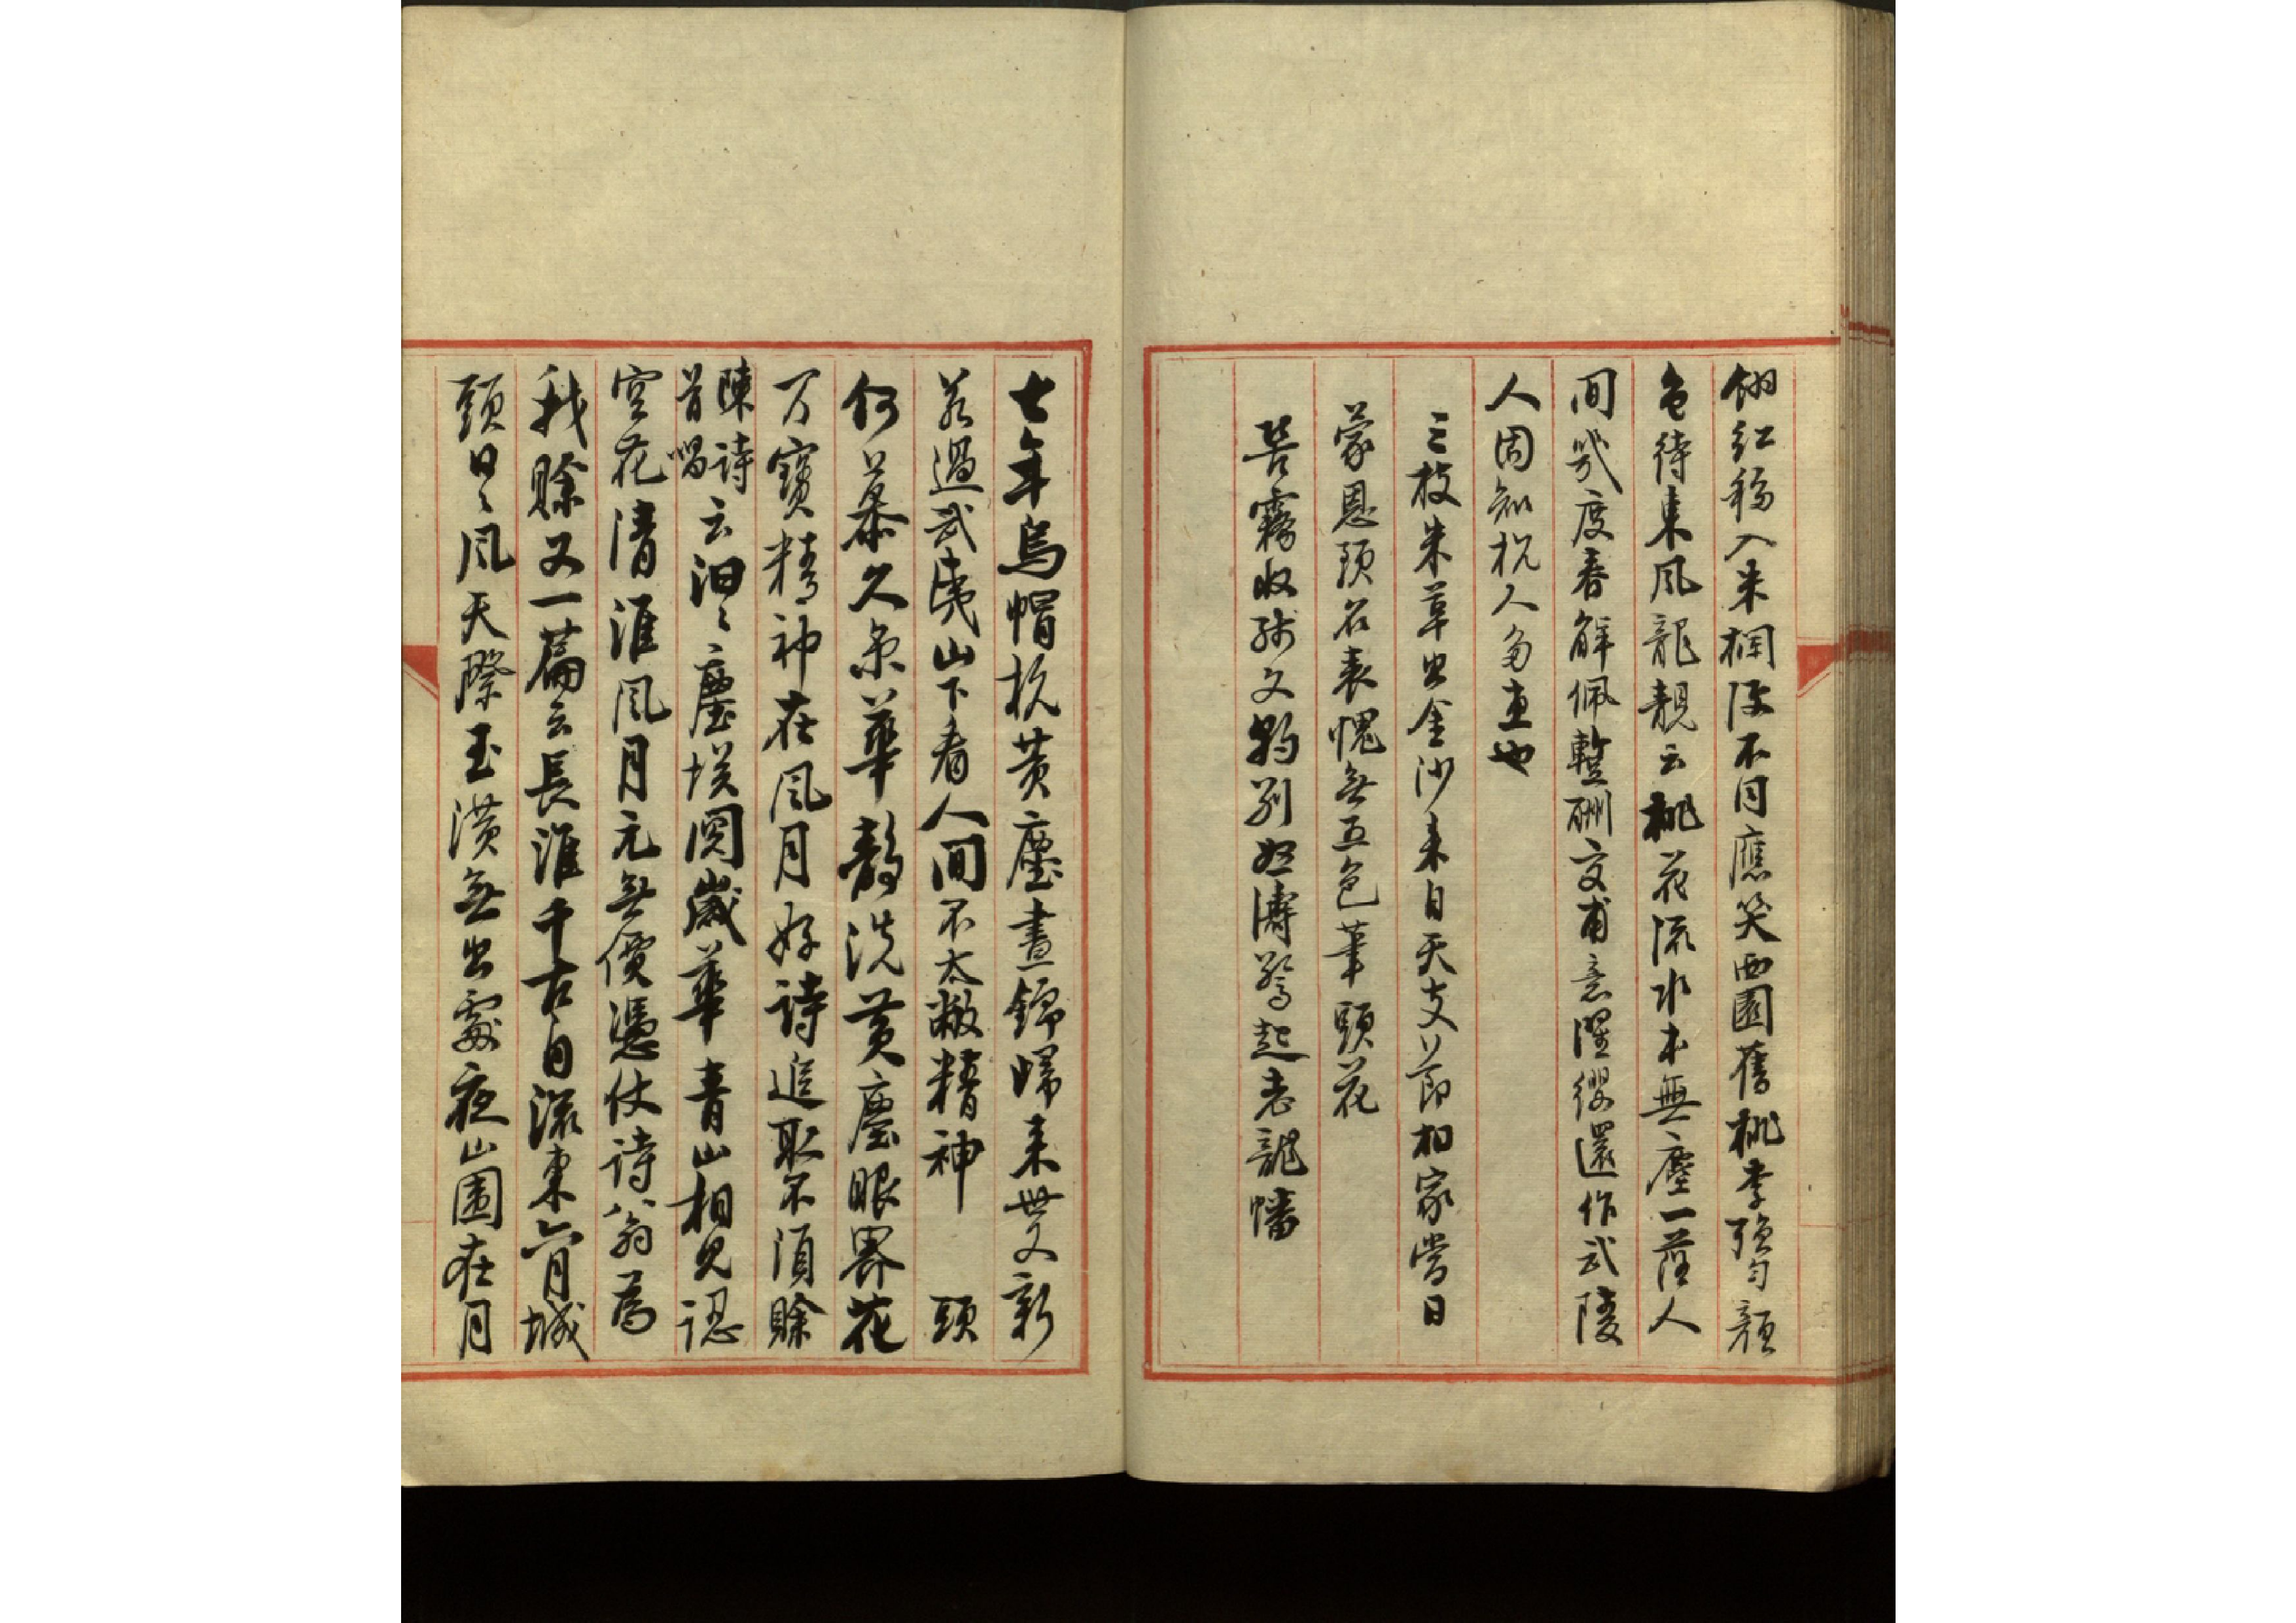 紅移入朱欄後不同應笑西園舊桃李強勻顏
色待東風龍靚云桃花流水本無塵一落人
間幾度春解佩暫酬交甫意濯纓還作武陵
人因知杭人多惠也
三枝朱草出金沙來自天支節相家當日
蒙恩頒名表愧無五色筆頭花
苦霧收殘文豹別怒濤驚起老龍幡
七年烏帽抗黃塵晝錦歸來無又新
若過武夷山下看人間不太敝精神 頭
何慕久矣華韵洗黃塵眼界花
万寶精神在風月好詩追取不須賒
陳詩首唱云汩々塵埃閱歲華青山相見認
空花清淮風月元無價憑仗詩翁為
我賒又一篇云長淮千古自流東六月城
頭日々風天際玉潢無出處夜山圍在月